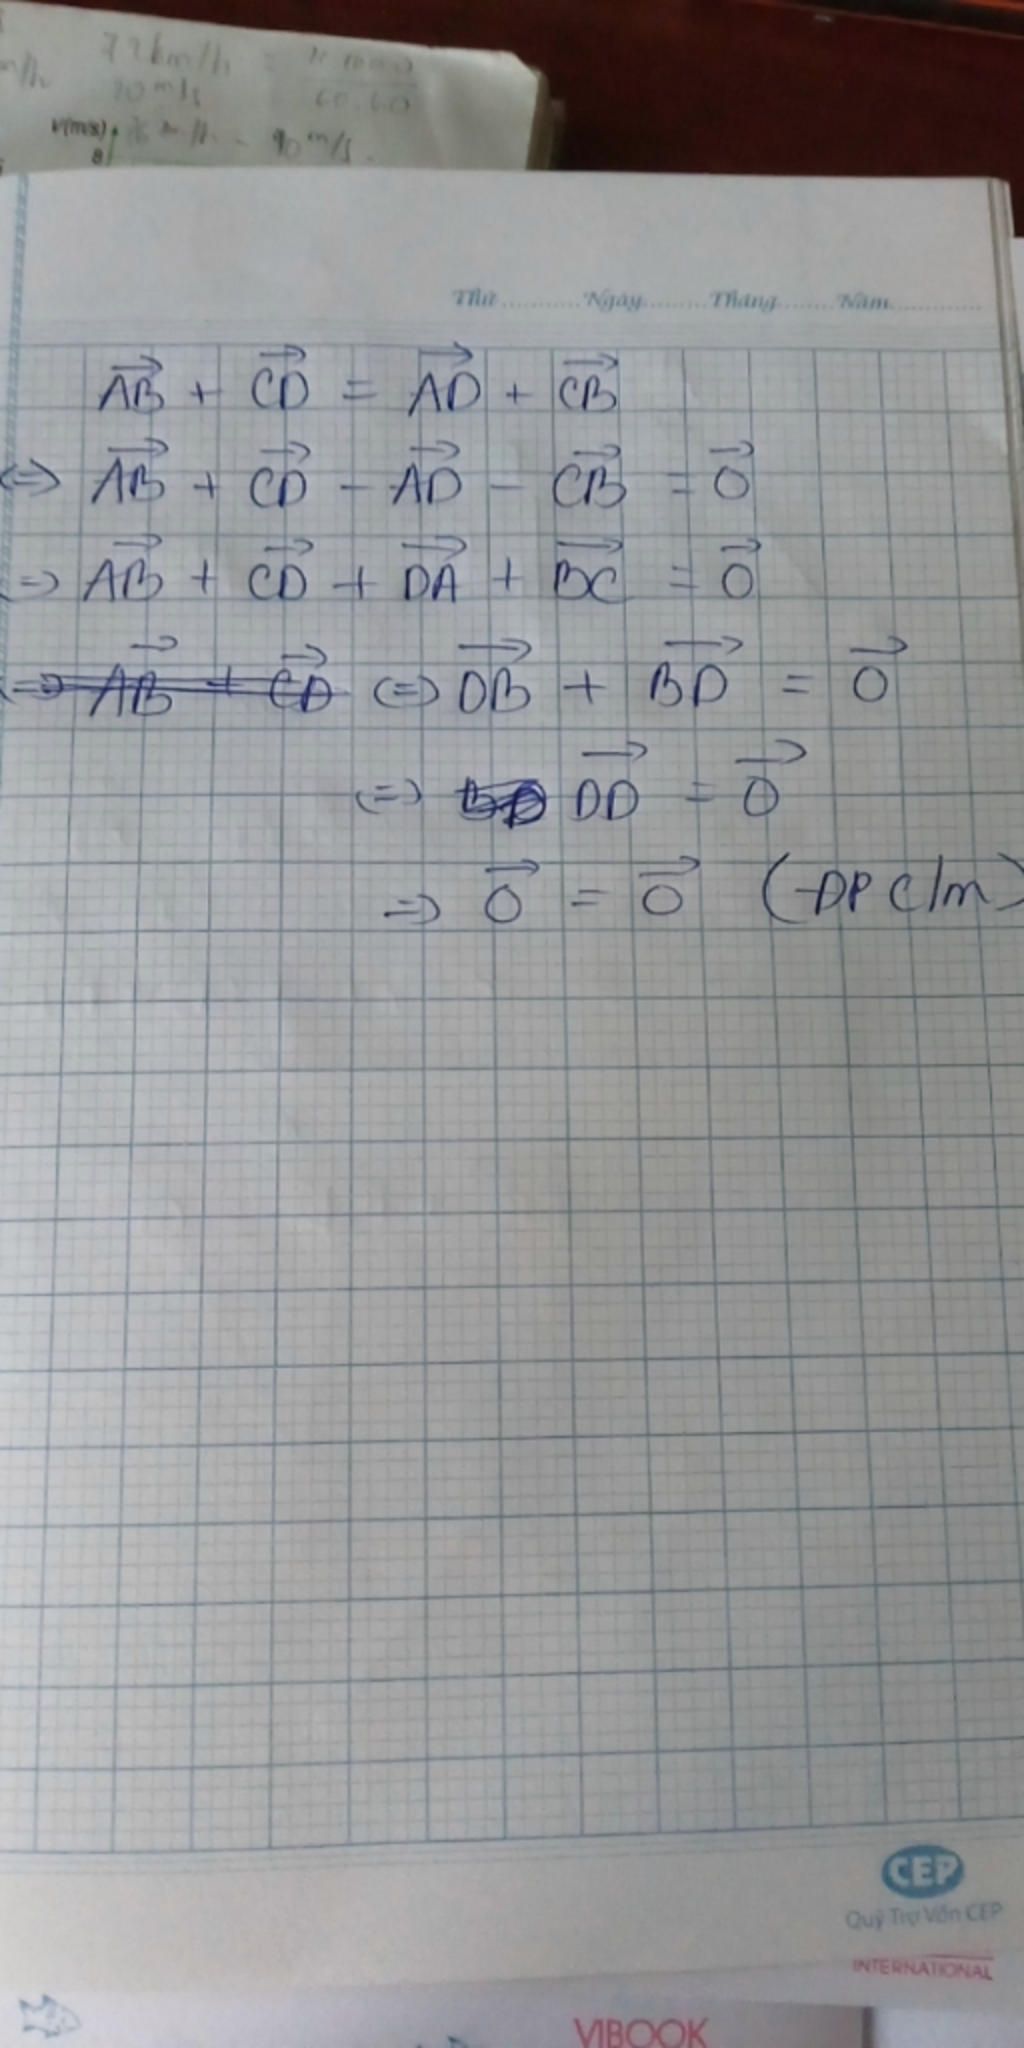 72km/h =
20 m/s 60.60
v(m/s)
8
Thứ Ngày Tháng Năm
AB + CD = AD + CB
⇔ AB + CD - AD - CB = 0
⇒ AB + CD + DA + BC = 0
⇒ AB + CD ⇔ DB + BD = 0
⇔ DD = 0
⇒ 0 = 0 (ĐPC/m)
CEP
Quỹ Trợ Vốn CEP
INTERNATIONAL
VIBOOK